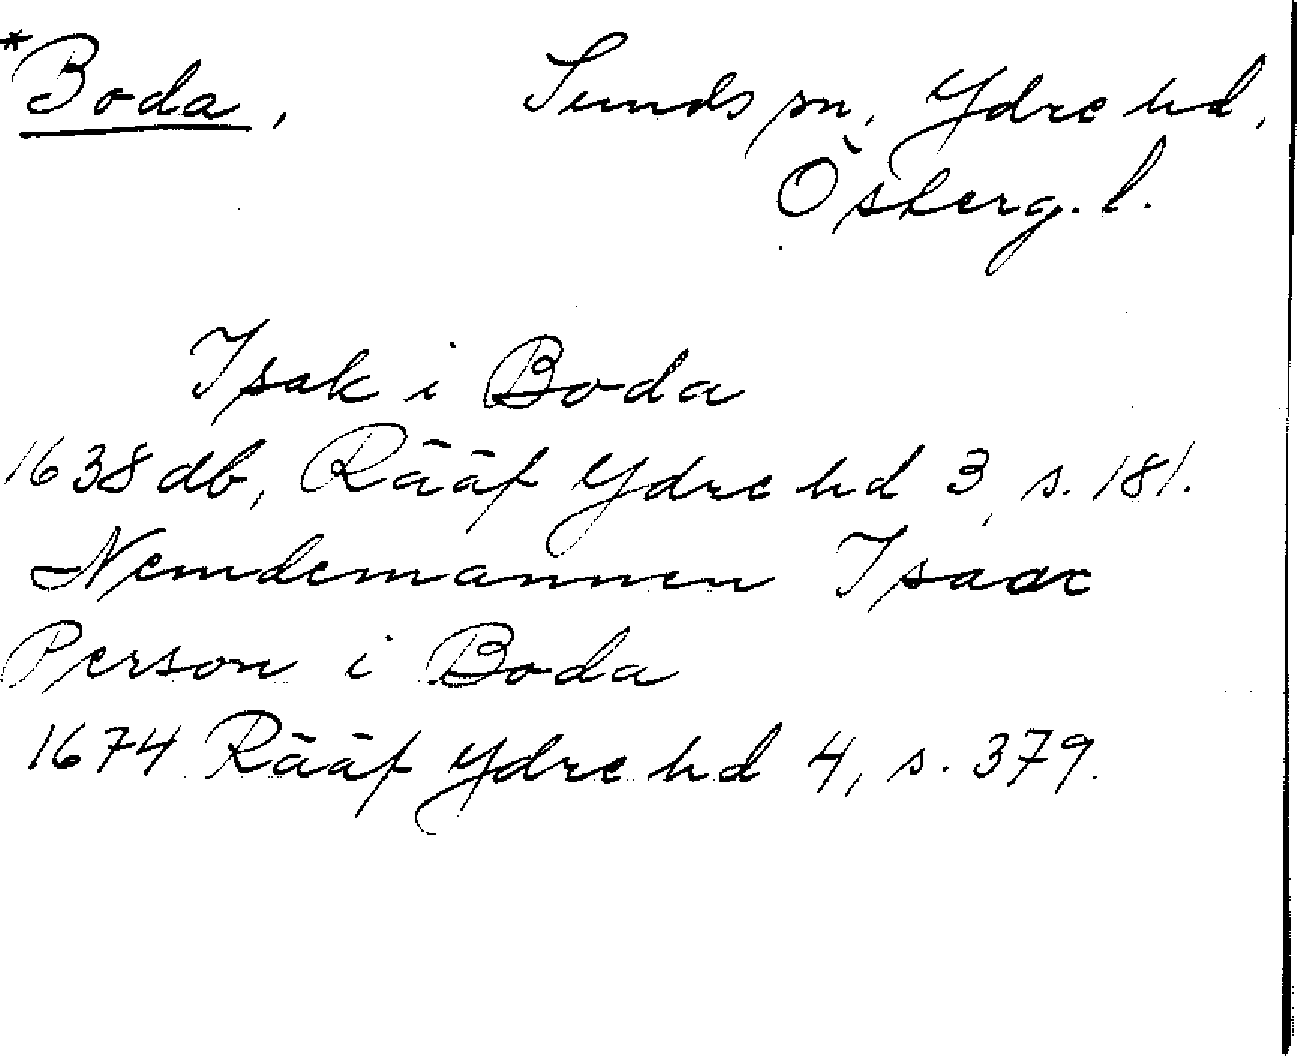 *Boda, Sunds sn, Ydre hd,
Österg. l.
Isak i Boda
1638 db, Rääf Ydre hd 3, s. 181.
Nemdemannen Isaac
Person i Boda
1674 Rääf Ydre hd 4, s. 379.